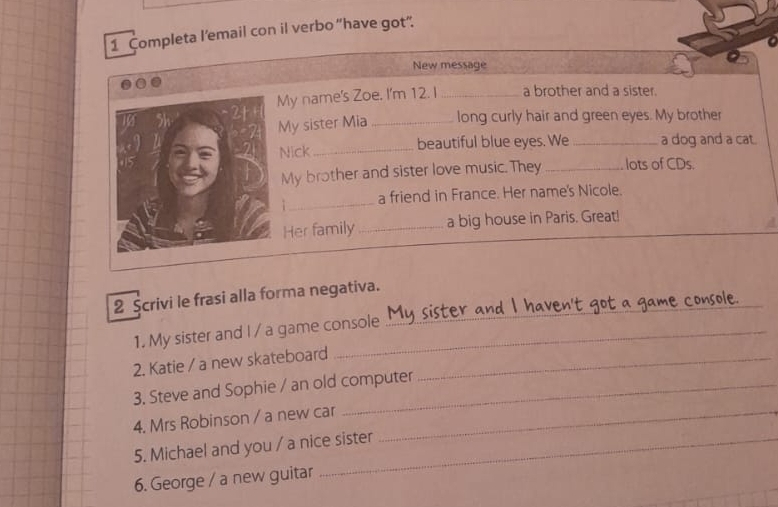 1 Completa l'email con il verbo "have got".
New message
My name's Zoe. I'm 12. I ............ a brother and a sister.
My sister Mia ............ long curly hair and green eyes. My brother
Nick ............ beautiful blue eyes. We ............ a dog and a cat.
My brother and sister love music. They ............ lots of CDs.
I ............ a friend in France. Her name's Nicole.
Her family ............ a big house in Paris. Great!
2 Scrivi le frasi alla forma negativa.
1. My sister and I / a game console My sister and I haven't got a game console.
2. Katie / a new skateboard ............
3. Steve and Sophie / an old computer ............
4. Mrs Robinson / a new car ............
5. Michael and you / a nice sister ............
6. George / a new guitar ............